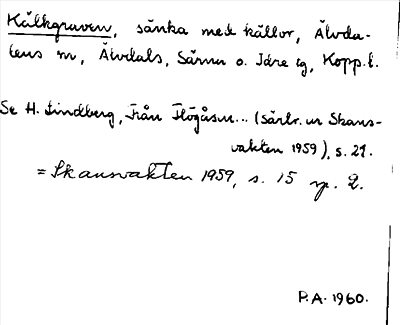 Källkgraven, sänka med källor, Älvda-
lens sn, Älvdals, Särna o. Idre tg, Kopp.l.
Se H. Lindberg, Från Flögåsen... (särtr. ur Skans-
vakten 1959), s. 21.
= Skansvakten 1959, s. 15 sp. 2.
P.A. 1960.